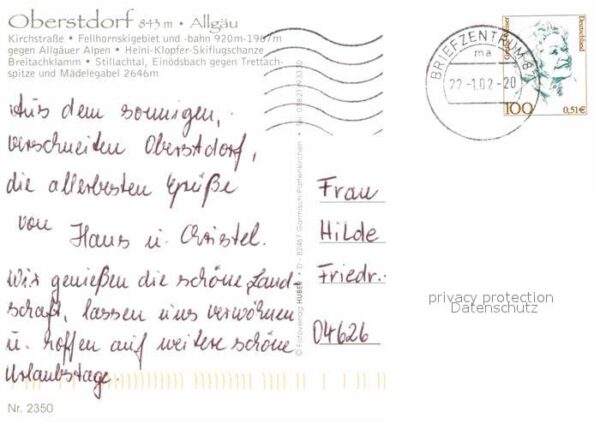 Oberstdorf 843 m • Allgäu
Kirchstraße • Fellhornskigebiet und -bahn 920m-1967m
gegen Allgäuer Alpen • Heini-Klopfer-Skiflugschanze
Breitachklamm • Stillachtal, Einödsbach gegen Trettach-
spitze und Mädelegabel 2646m
Aus dem sonnigen,
verschneiten Oberstdorf,
die allerbesten Grüße
von Hans u. Christel.
Wir genießen die schöne Land-
schaft, lassen uns verwöhnen
u. hoffen auf weitere schöne
Urlaubstage.
Nr. 2350
© Fotoverlag HUBER • D - 82467 Garmisch-Partenkirchen •
BRIEFZENTRUM 87
ma
22.-1.02.-20
Deutschland
100
0,51€
Frau
Hilde
Friedr.-
04626
privacy protection
Datenschutz